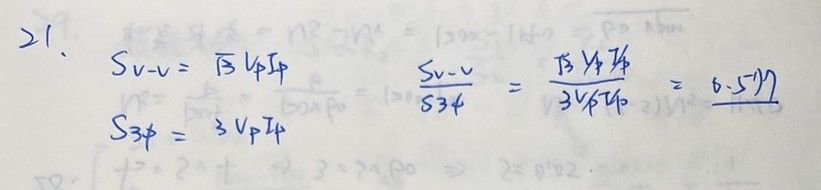 21.
Sv-v = √3 VpIp
S3φ = 3 VpIp
Sv-v / S3φ = √3 VpIp / 3 VpIp = 0.577